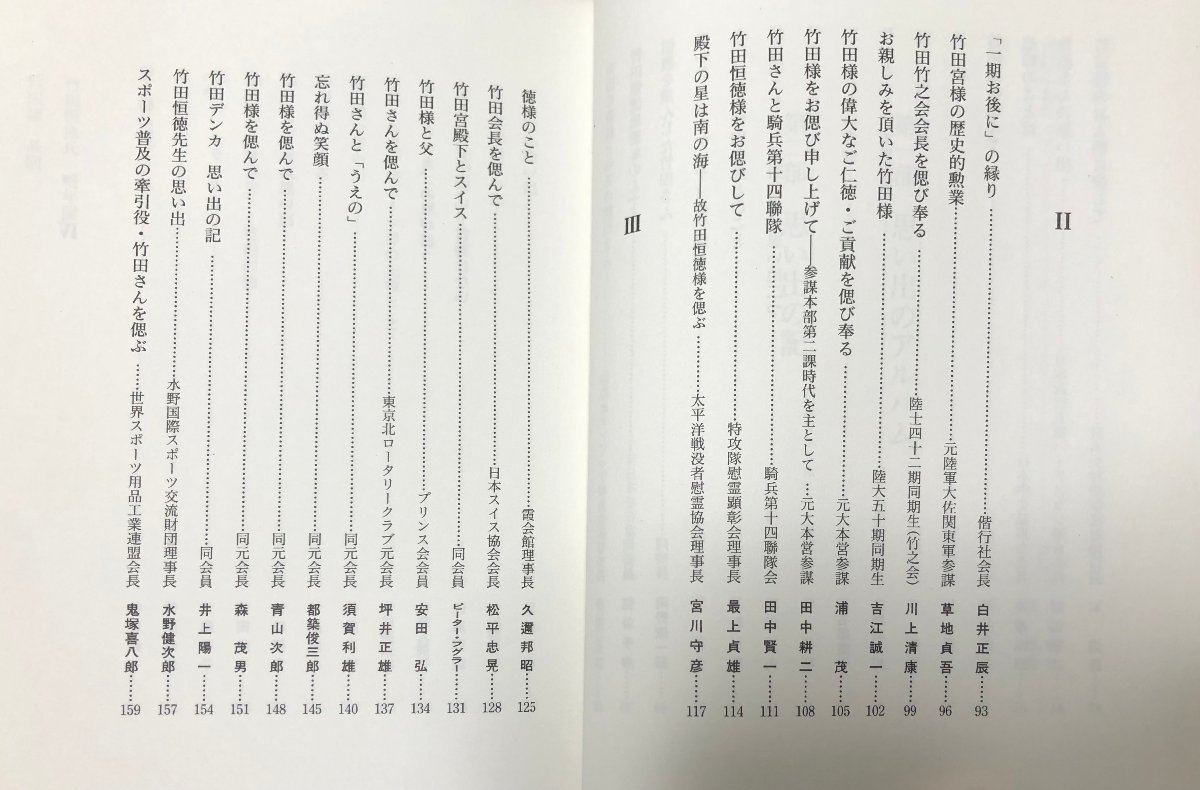 II
「一期お後に」の縁り……偕行社会長 白井正辰……93
竹田宮様の歴史的勲業……元陸軍大佐関東軍参謀 草地貞吾……96
竹田竹之会会長を偲び奉る……陸士四十二期同期生(竹之会) 川上清康……99
お親しみを頂いた竹田様……陸大五十期同期生 吉江誠一……102
竹田様の偉大なご仁徳・ご貢献を偲び奉る……元大本営参謀 浦茂……105
竹田様をお偲び申し上げて——参謀本部第二課時代を主として…元大本営参謀 田中耕二……108
竹田さんと騎兵第十四聯隊……騎兵第十四聯隊会 田中賢一……111
竹田恒徳様をお偲びして……特攻隊慰霊顕彰会理事長 最上貞雄……114
殿下の星は南の海——故竹田恒徳様を偲ぶ……太平洋戦没者慰霊協会理事長 宮川守彦……117
III
徳様のこと……霞会館理事長 久邇邦昭……125
竹田会長を偲んで……日本スイス協会会長 松平忠晃……128
竹田宮殿下とスイス……同会員 ピーター・フグラー……131
竹田様と父……プリンス会会員 安田弘……134
竹田さんを偲んで……東京北ロータリークラブ元会長 坪井正雄……137
竹田さんと「うえの」……同元会長 須賀利雄……140
忘れ得ぬ笑顔……同元会長 都築俊三郎……145
竹田様を偲んで……同元会長 青山次郎……148
竹田様を偲んで……同元会長 森茂男……151
竹田デンカ 思い出の記……同会員 井上陽一……154
竹田恒徳先生の思い出……水野国際スポーツ交流財団理事長 水野健次郎……157
スポーツ普及の牽引役・竹田さんを偲ぶ……世界スポーツ用品工業連盟会長 鬼塚喜八郎……159